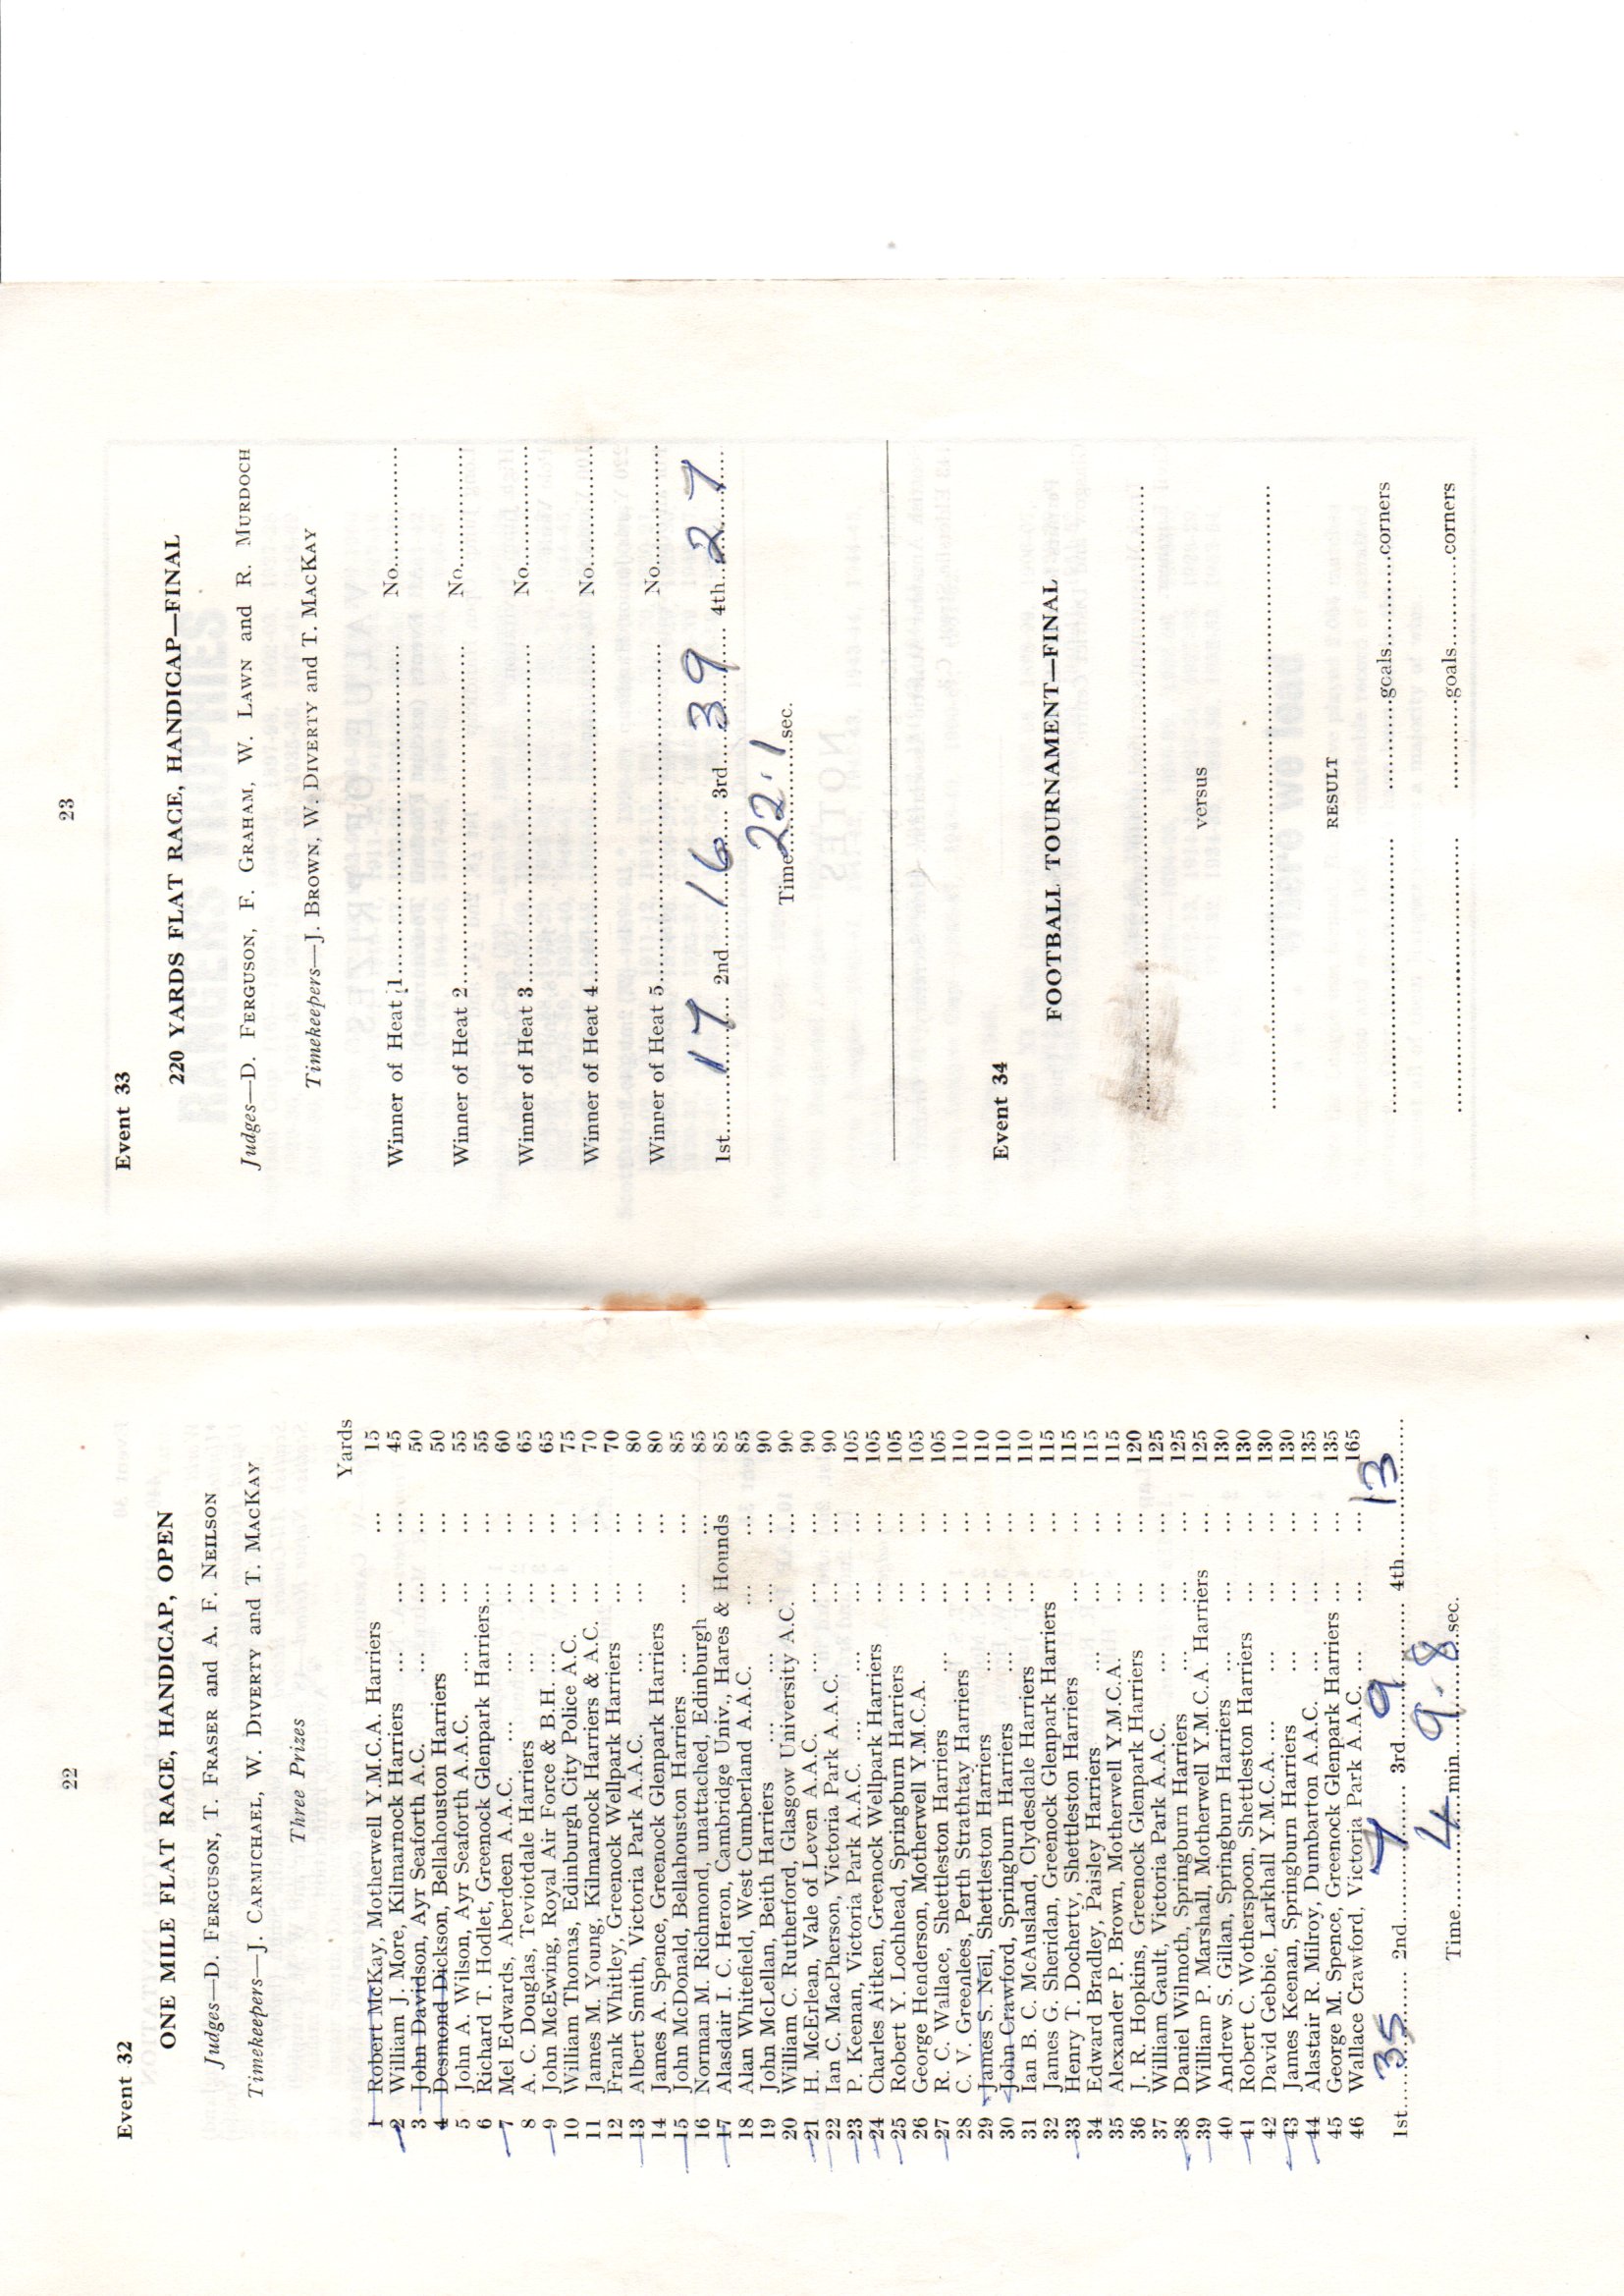 22
Event 32
ONE MILE FLAT RACE, HANDICAP, OPEN
Judges—D. FERGUSON, T. FRASER and A. F. NEILSON
Timekeepers—J. CARMICHAEL, W. DIVERTY and T. MACKAY
Three Prizes
Yards
1 Robert McKay, Motherwell Y.M.C.A. Harriers ... 15
2 William J. More, Kilmarnock Harriers ... ... 45
3 John Davidson, Ayr Seaforth A.C. ... ... ... 50
4 Desmond Dickson, Bellahouston Harriers ... ... 50
5 John A. Wilson, Ayr Seaforth A.A.C. ... ... ... 55
6 Richard T. Hodlet, Greenock Glenpark Harriers... ... 55
7 Mel Edwards, Aberdeen A.A.C. ... ... ... 60
8 A. C. Douglas, Teviotdale Harriers ... ... ... 65
9 John McEwing, Royal Air Force & B.H. ... ... ... 65
10 William Thomas, Edinburgh City Police A.C. ... ... 75
11 James M. Young, Kilmarnock Harriers & A.C. ... ... 70
12 Frank Whitley, Greenock Wellpark Harriers ... ... 70
13 Albert Smith, Victoria Park A.A.C. ... ... ... 80
14 James A. Spence, Greenock Glenpark Harriers ... 80
15 John McDonald, Bellahouston Harriers ... ... ... 85
16 Norman M. Richmond, unattached, Edinburgh ... 85
17 Alasdair I. C. Heron, Cambridge Univ., Hares & Hounds 85
18 Alan Whitefield, West Cumberland A.A.C. ... ... 85
19 John McLellan, Beith Harriers ... ... ... ... 90
20 William C. Rutherford, Glasgow University A.C. ... 90
21 H. McErlean, Vale of Leven A.A.C. ... ... ... 90
22 Ian C. MacPherson, Victoria Park A.A.C. ... ... 90
23 P. Keenan, Victoria Park A.A.C. ... ... ... ... 105
24 Charles Aitken, Greenock Wellpark Harriers ... ... 105
25 Robert Y. Lochhead, Springburn Harriers ... ... 105
26 George Henderson, Motherwell Y.M.C.A. ... ... 105
27 R. C. Wallace, Shettleston Harriers ... ... ... 105
28 C. V. Greenlees, Perth Strathtay Harriers ... ... 110
29 James S. Neil, Shettleston Harriers ... ... ... 110
30 John Crawford, Springburn Harriers ... ... ... 110
31 Ian B. C. McAusland, Clydesdale Harriers ... ... 110
32 James G. Sheridan, Greenock Glenpark Harriers ... 115
33 Henry T. Docherty, Shettleston Harriers ... ... 115
34 Edward Bradley, Paisley Harriers ... ... ... 115
35 Alexander P. Brown, Motherwell Y.M.C.A. ... ... 115
36 J. R. Hopkins, Greenock Glenpark Harriers ... ... 120
37 William Gault, Victoria Park A.A.C. ... ... 125
38 Daniel Wilmoth, Springburn Harriers ... ... ... 125
39 William P. Marshall, Motherwell Y.M.C.A. Harriers ... 125
40 Andrew S. Gillan, Springburn Harriers ... ... ... 130
41 Robert C. Wotherspoon, Shettleston Harriers ... ... 130
42 David Gebbie, Larkhall Y.M.C.A. ... ... ... ... 130
43 James Keenan, Springburn Harriers ... ... ... 130
44 Alastair R. Milroy, Dumbarton A.A.C. ... ... ... 135
45 George M. Spence, Greenock Glenpark Harriers ... ... 135
46 Wallace Crawford, Victoria Park A.A.C. ... ... ... 165
1st 35 2nd 7 3rd 9 4th 13
Time 4 min 9.8 sec.
23
Event 33
220 YARDS FLAT RACE, HANDICAP—FINAL
Judges—D. FERGUSON, F. GRAHAM, W. LAWN and R. MURDOCH
Timekeepers—J. BROWN, W. DIVERTY and T. MACKAY
Winner of Heat 1 No.
Winner of Heat 2 No.
Winner of Heat 3 No.
Winner of Heat 4 No.
Winner of Heat 5 No.
1st 17 2nd 16 3rd 39 4th 27
Time 22.1 sec.
Event 34
FOOTBALL TOURNAMENT—FINAL
versus
RESULT
goals corners
goals corners